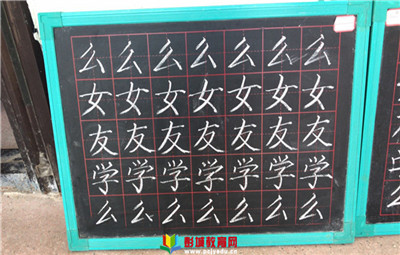 么么么么么么么
女女女女女女女
友友友友友友友
学学学学学学学
么么么么么么么
彭城教育网